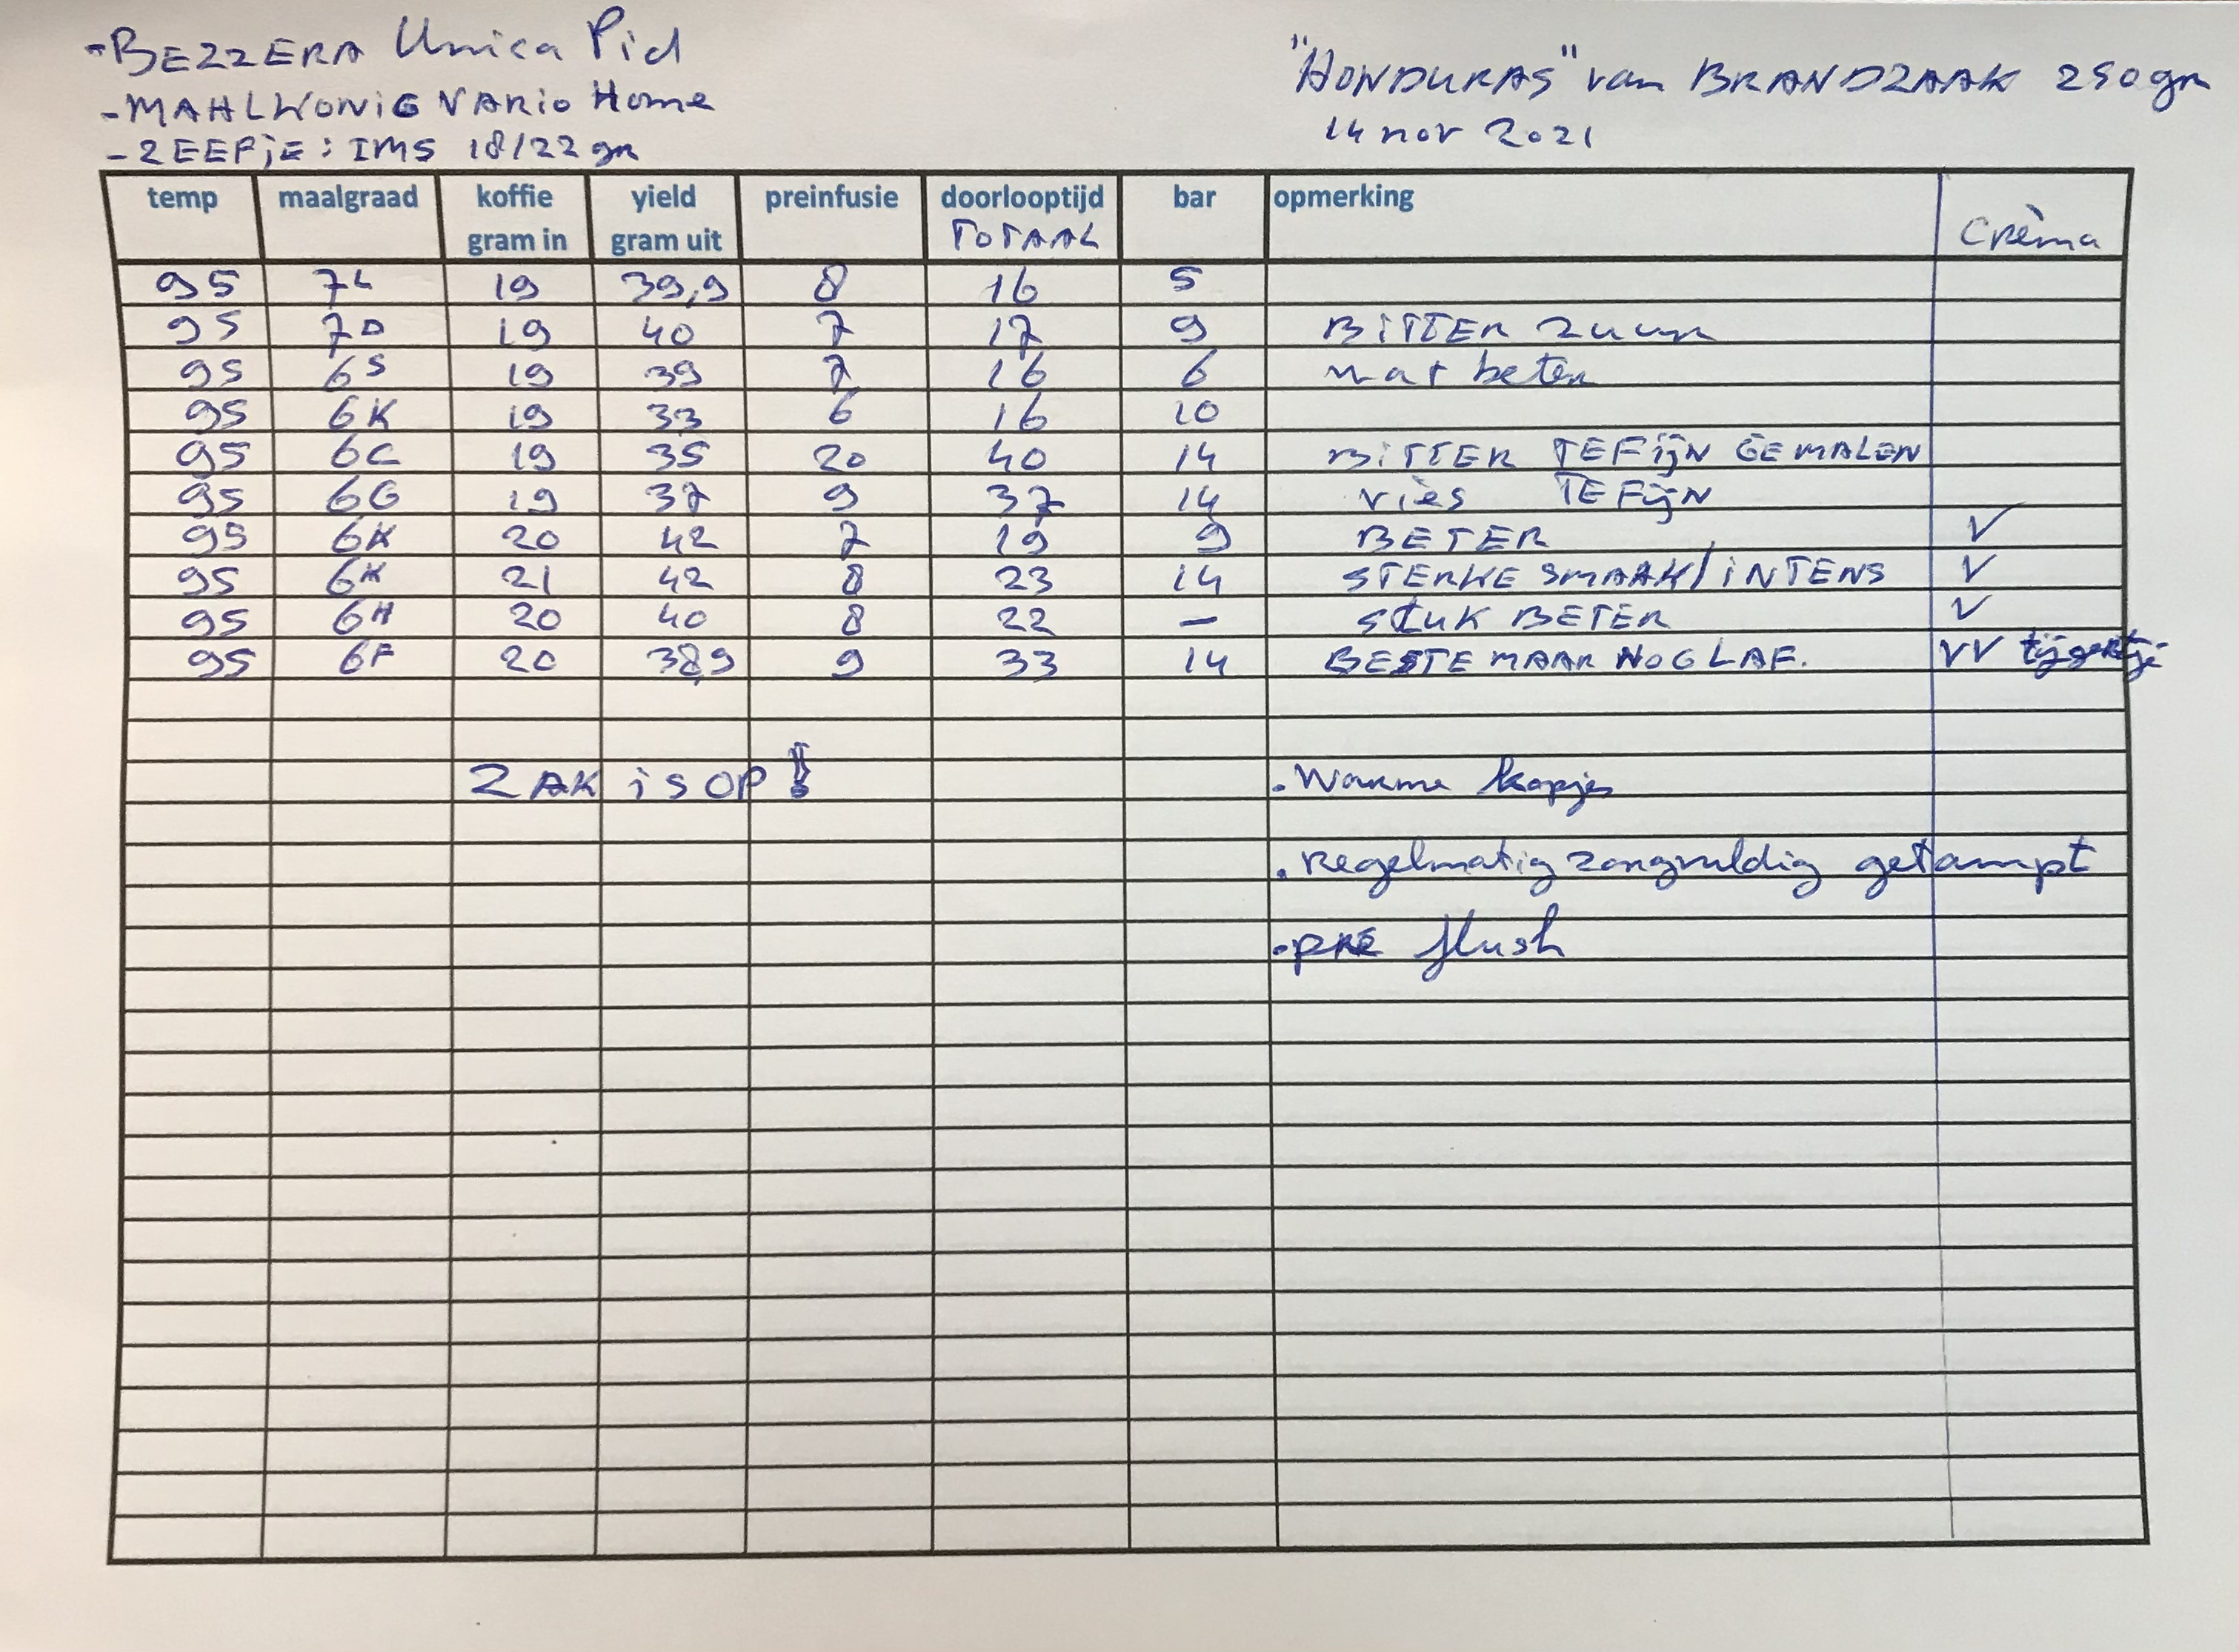 -BEZZERA Unica Pid
-MAHLKONiG VARio Home
-ZEEFjE: IMS 18/22 gr
"HONDURAS" van BRANDZAAK 250gr
14 nov 2021
temp maalgraad koffie gram in yield gram uit preinfusie doorlooptijd TOTAAL bar opmerking Crèma
95 7L 19 39,9 8 16 5
95 7D 19 40 7 17 9 BiTTER zuur
95 6S 19 39 7 16 6 wat beter
95 6K 19 33 6 16 10
95 6C 19 35 20 40 14 BiTTER TEFijN GEMALEN
95 6G 19 37 9 37 14 vies TEFijN
95 6K 20 42 7 19 9 BETER V
95 6K 21 42 8 23 14 STERKE SMAAK/iNTENS V
95 6H 20 40 8 22 - STUK BETER V
95 6F 20 38,9 9 33 14 BESTE MAAR NOG LAF. VV tijgertje
ZAK iS OP!
. Warme kopjes
. Regelmatig zorgvuldig getampt
. PRE flush